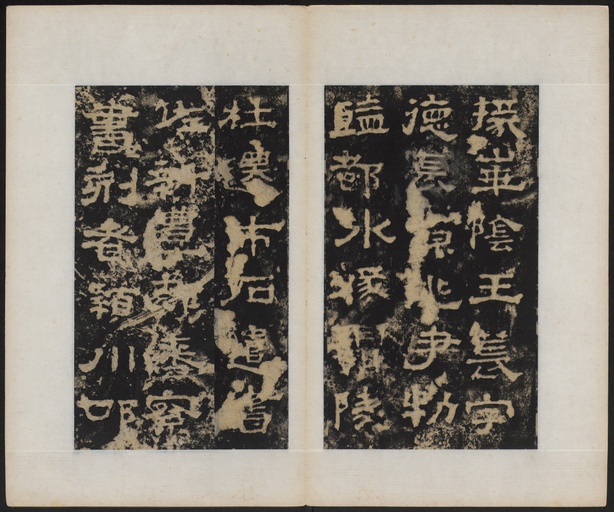 掾華陰王萇字
德長京兆尹勑
監都水掾霸陵
杜遷市石遣書
佐新豐郭香察
書刻者潁川邯